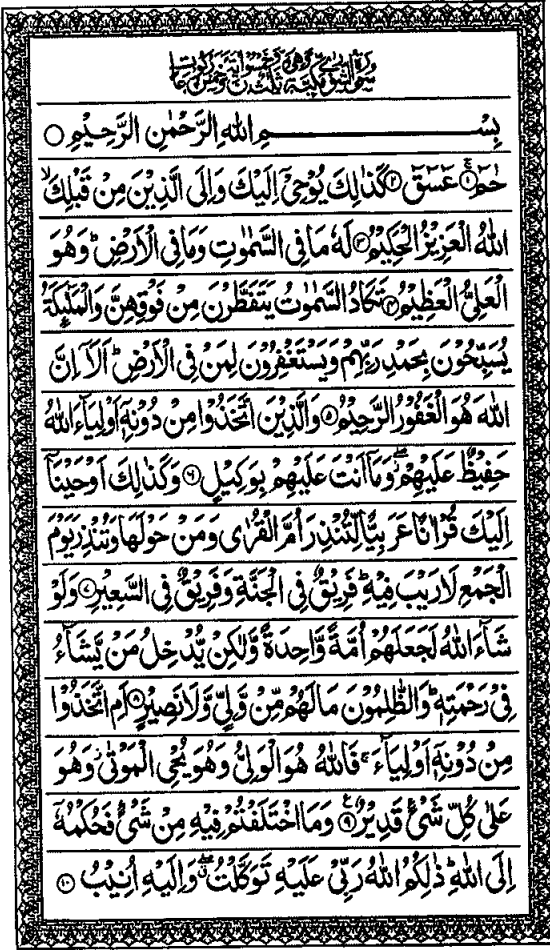 سورة الشورى مكية وهي ثلث وخمسون اية وخمس ركوعات
بِسْمِ اللهِ الرَّحْمٰنِ الرَّحِيْمِ ○
حٰمٓ ۚ﴿۱﴾ عٓسٓقٓ ﴿۲﴾ كَذٰلِكَ يُوْحِيْٓ اِلَيْكَ وَاِلَى الَّذِيْنَ مِنْ قَبْلِكَ ۙ
اللهُ الْعَزِيْزُ الْحَكِيْمُ ﴿۳﴾ لَهٗ مَا فِي السَّمٰوٰتِ وَمَا فِي الْاَرْضِ ؕ وَهُوَ
الْعَلِيُّ الْعَظِيْمُ ﴿۴﴾ تَكَادُ السَّمٰوٰتُ يَتَفَطَّرْنَ مِنْ فَوْقِهِنَّ وَالْمَلٰٓئِكَةُ
يُسَبِّحُوْنَ بِحَمْدِ رَبِّهِمْ وَيَسْتَغْفِرُوْنَ لِمَنْ فِي الْاَرْضِ ؕ اَلَآ اِنَّ
اللهَ هُوَ الْغَفُوْرُ الرَّحِيْمُ ﴿۵﴾ وَالَّذِيْنَ اتَّخَذُوْا مِنْ دُوْنِهٖٓ اَوْلِيَآءَ اللهُ
حَفِيْظٌ عَلَيْهِمْ ۖ وَمَآ اَنْتَ عَلَيْهِمْ بِوَكِيْلٍ ﴿۶﴾ وَكَذٰلِكَ اَوْحَيْنَآ
اِلَيْكَ قُرْاٰنًا عَرَبِيًّا لِّتُنْذِرَ اُمَّ الْقُرٰى وَمَنْ حَوْلَهَا وَتُنْذِرَ يَوْمَ
الْجَمْعِ لَا رَيْبَ فِيْهِ ؕ فَرِيْقٌ فِي الْجَنَّةِ وَفَرِيْقٌ فِي السَّعِيْرِ ﴿۷﴾ وَلَوْ
شَآءَ اللهُ لَجَعَلَهُمْ اُمَّةً وَّاحِدَةً وَّلٰكِنْ يُّدْخِلُ مَنْ يَّشَآءُ
فِيْ رَحْمَتِهٖ ؕ وَالظّٰلِمُوْنَ مَا لَهُمْ مِّنْ وَّلِيٍّ وَّلَا نَصِيْرٍ ﴿۸﴾ اَمِ اتَّخَذُوْا
مِنْ دُوْنِهٖٓ اَوْلِيَآءَ ۚ فَاللهُ هُوَ الْوَلِيُّ وَهُوَ يُحْيِ الْمَوْتٰى ۫ وَهُوَ
عَلٰى كُلِّ شَيْءٍ قَدِيْرٌ ﴿۹﴾ وَمَا اخْتَلَفْتُمْ فِيْهِ مِنْ شَيْءٍ فَحُكْمُهٗٓ
اِلَى اللهِ ؕ ذٰلِكُمُ اللهُ رَبِّيْ عَلَيْهِ تَوَكَّلْتُ ۖ وَاِلَيْهِ اُنِيْبُ ﴿۱۰﴾